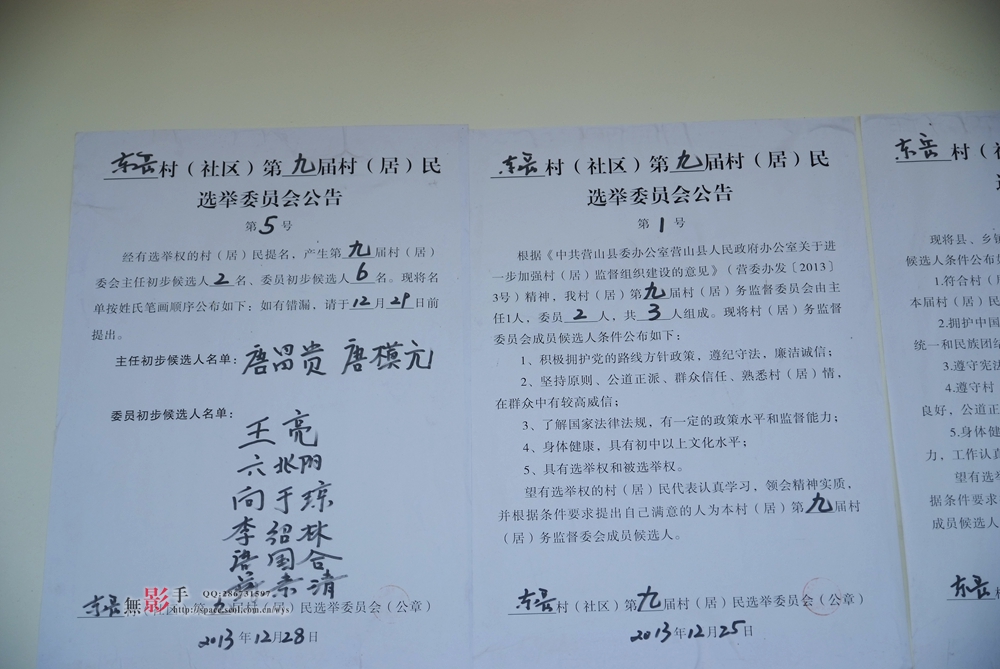 东岳村（社区）第九届村（居）民
选举委员会公告
第5号
经有选举权的村（居）民提名，产生第九届村（居）
委会主任初步候选人2名、委员初步候选人6名。现将名
单按姓氏笔画顺序公布如下：如有错漏，请于12月29日前
提出。
主任初步候选人名单：唐昌贵 唐模元
委员初步候选人名单：
王亮
向于琼
李绍林
国合
清
東岳 無影手 QQ:286731597
http://space.scol.com.cn/wys
第九届村（居）民选举委员会（公章）
2013年12月28日
东岳村（社区）第九届村（居）民
选举委员会公告
第1号
根据《中共营山县委办公室营山县人民政府办公室关于进
一步加强村（居）监督组织建设的意见》（营委办发〔2013〕
3号）精神，我村（居）第九届村（居）务监督委员会由主
任1人，委员2人，共3人组成。现将村（居）务监督
委员会成员候选人条件公布如下：
1、积极拥护党的路线方针政策，遵纪守法，廉洁诚信；
2、坚持原则、公道正派、群众信任、熟悉村（居）情，
在群众中有较高威信；
3、了解国家法律法规，有一定的政策水平和监督能力；
4、身体健康，具有初中以上文化水平；
5、具有选举权和被选举权。
望有选举权的村（居）民代表认真学习，领会精神实质，
并根据条件要求提出自己满意的人为本村（居）第九届村
（居）务监督委会成员候选人。
东岳村（社区）第九届村（居）民选举委员会（公章）
2013年12月25日
东岳村（社
现将县、乡镇
候选人条件公布如
1.符合村（
本届村（居）民
2.拥护中国
统一和民族团结
3.遵守宪法
4.遵守村
良好，公道正
5.身体健
力，工作认真
望有选举
据条件要求
成员候选人
东岳